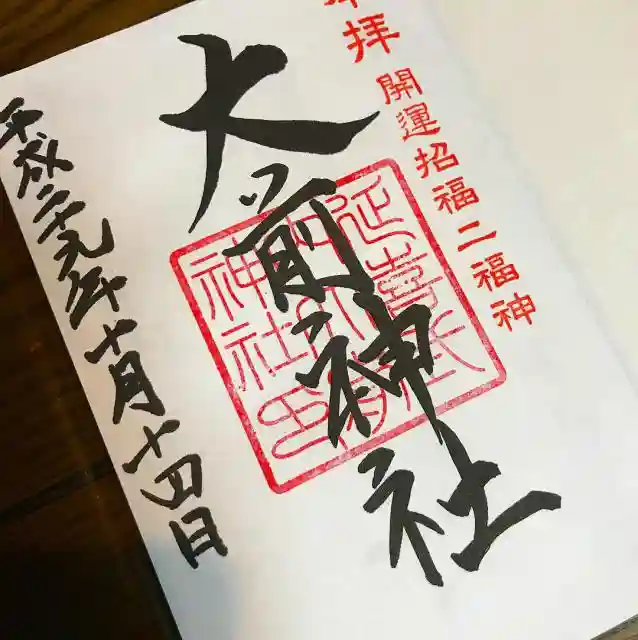 奉拝
開運招福二福神
大前神社
延喜式
神社印
平成二十九年十月十四日